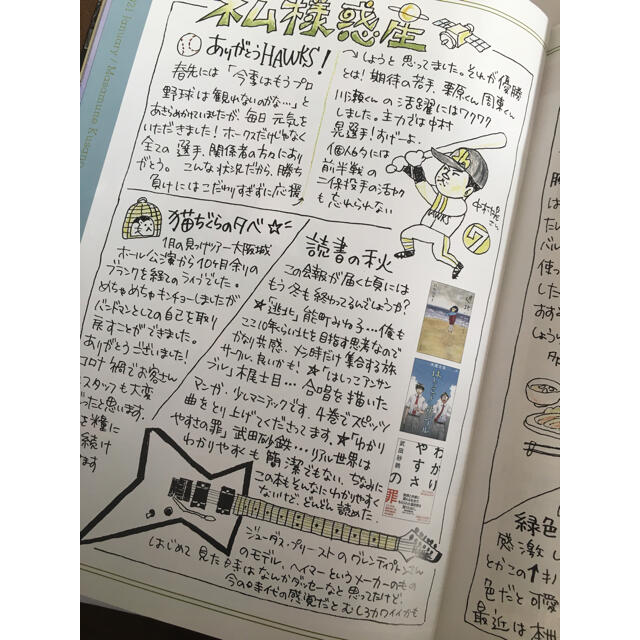 ネム様惑星
ありがとうHAWKS!
春先には「今季はもうプロ
野球は観れないのかな…」と
あきらめかけていましたが、毎日元気を
いただきました!ホークスだけじゃなく
全ての選手、関係者の方々にあり
がとう。こんな状況だから、勝ち
負けにはこだわりすぎずに応援
しようと思ってました。それが優勝
とは!期待の若手、栗原くん周東くん
川瀬くんの活躍にはワクワク
しました。主力では中村
晃選手!あげーよ。
個人的には
前半戦の
二保投手の活やくも
忘れられない
HAWKS
中村晃さん
7
猫ちぐらの夕べ☆
1月の見っけツアー大阪城
ホール公演から10ヶ月余りの
ブランクを経てのライブでした。
めちゃめちゃキンチョーしましたが
バンドマンとしての自己を取り
戻すことができました。
ありがとうございました!
コロナ禍でお客さん
スタッフも大変
ったと思います。
を糧に
続け
ます
読書の秋
この会報が届く頃には
もう冬も終わってるんでしょうか?
★「逃北」能町みね子…俺も
ここ10年らい北を目指す思考なので
かなり共感。メシ時だけ集合する旅
サークル、良いかも!★「はしっこアンサン
ブル」木尾士目…合唱を描いた
マンガ。少しマニアックです。4巻でスピッツ
曲をとり上げてくださってます。★「わかり
やすさの罪」武田砂鉄…リアル世界は
わかりやすくも簡潔でもない。ちなみに
この本もそんなにわかりやすく
ないけど、どんどん読めた。
わかり
やすさ
の
罪
武田砂鉄
ジューダス・プリーストのグレンティプトンさん
のモデル、ヘイマーというメーカーのもの
はじめて見た時はなんかダッセーなと思ってたけど、
今の時代の感覚だとむしろカワイイかも
021 January / Masamune Kusano
緑色
感激し
とかこの↑キ
色だと可愛
最近は本州